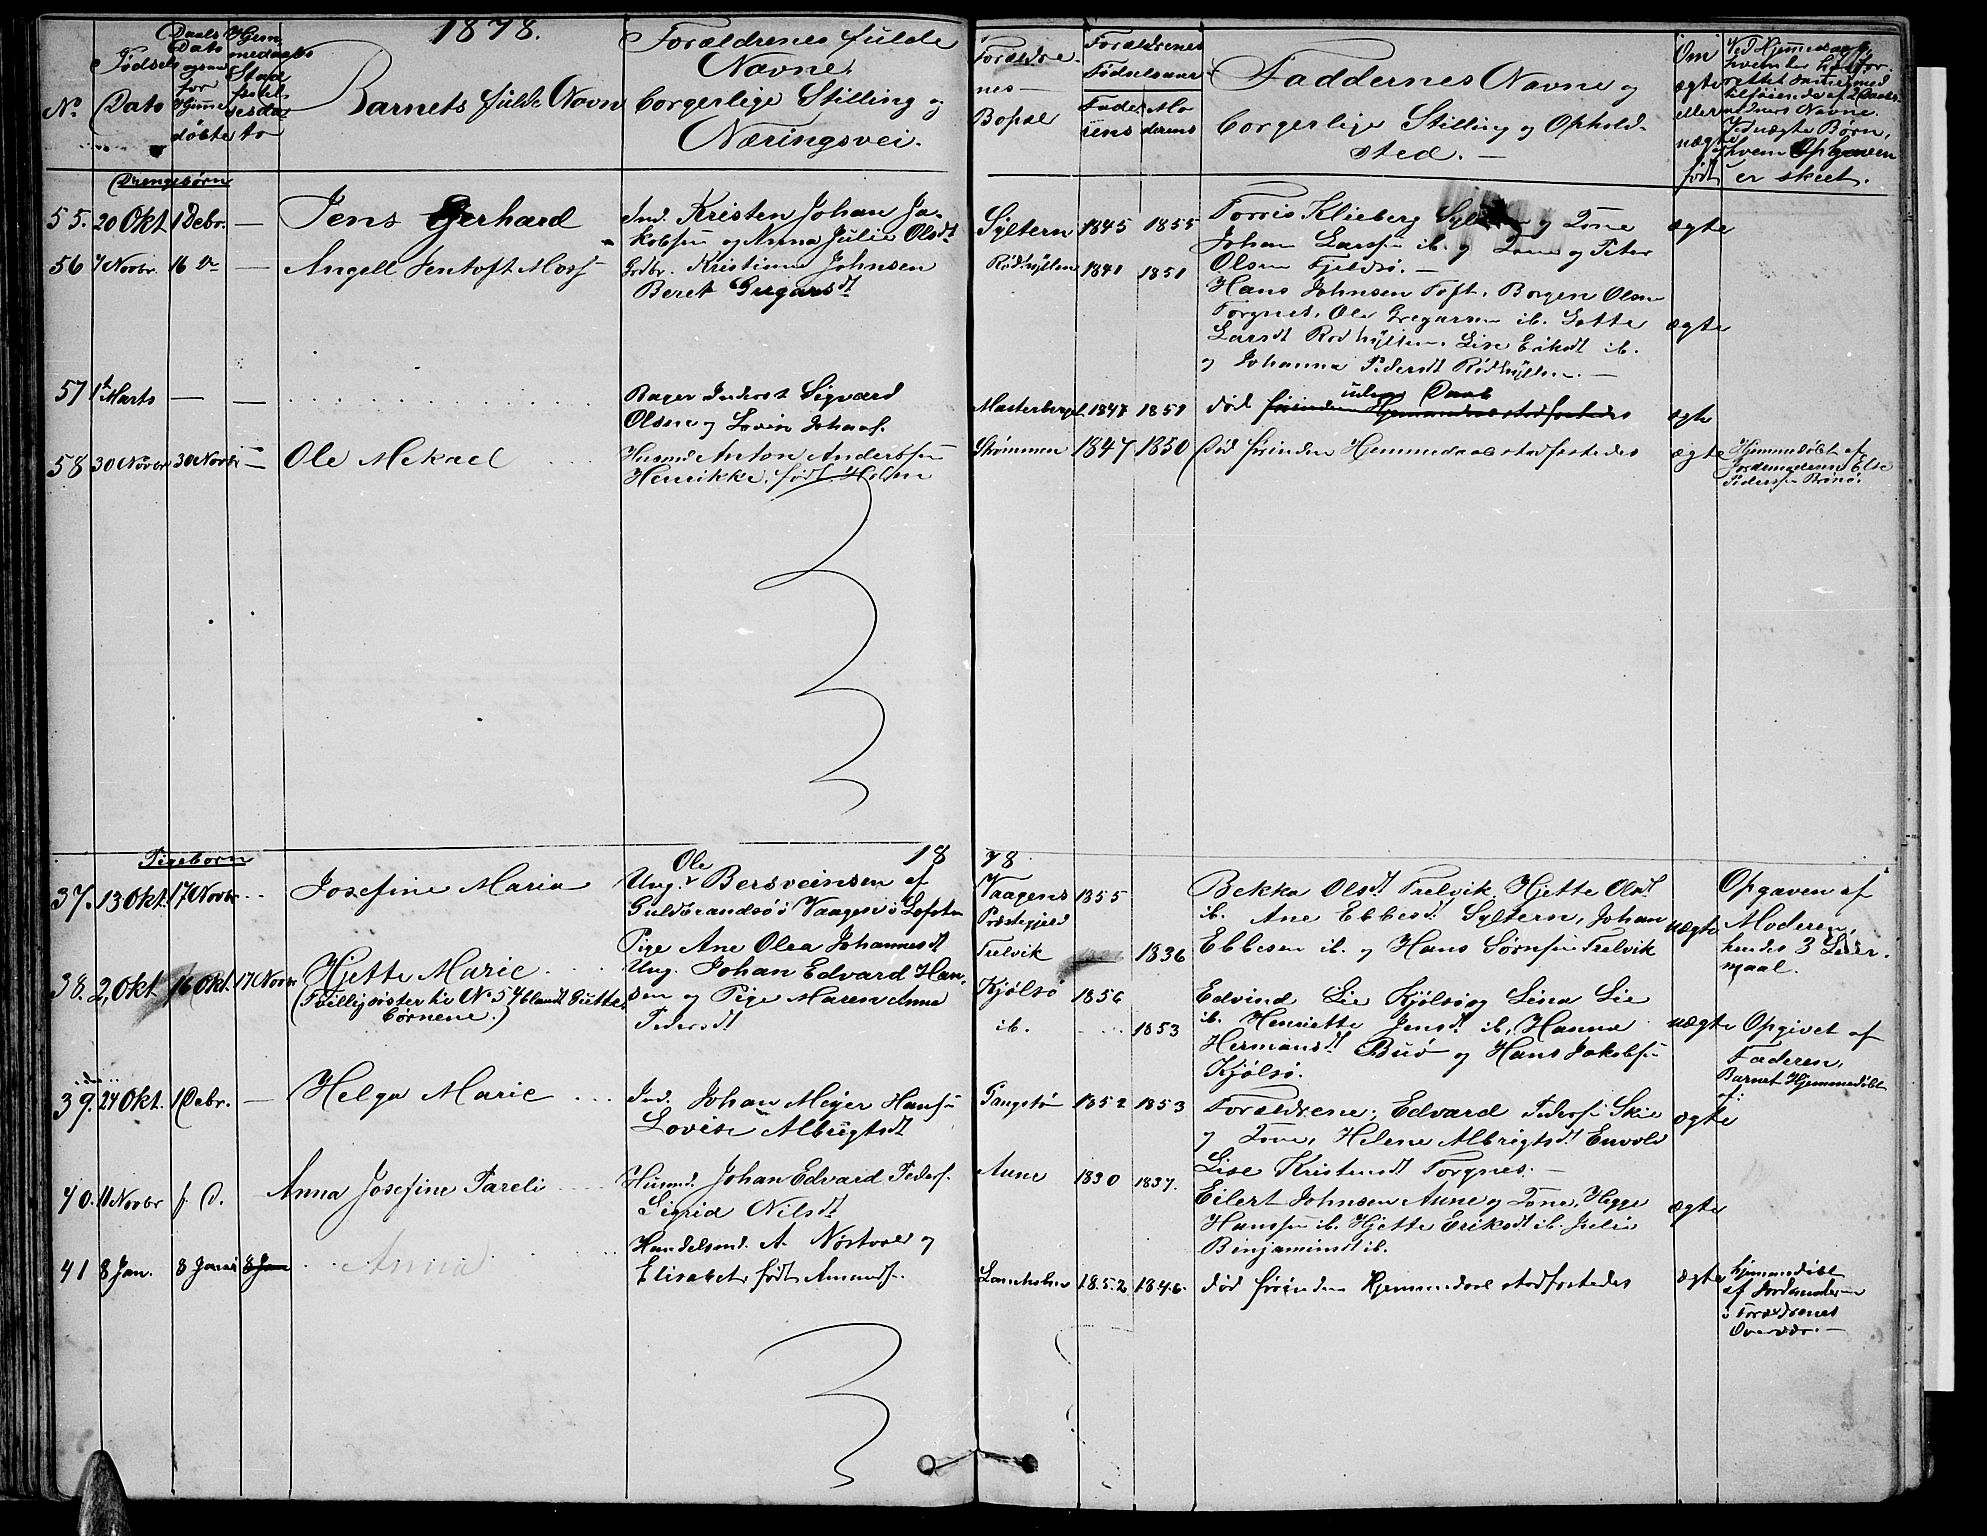 1878.
No.
Fødsels Dato
Daabs Dato ogsaa for Hjemme døbte
Barnets fulde Navn
Forældrenes fulde Navne, borgerlige Stilling og Næringsvei.
Forældrenes Bopæl
Forældrenes Fødselsaar
Faderens
Moderens
Faddernes Navne og borgerlige Stilling og Opholdsted. —
Om ægte eller uægte født
Drengebørn
55. 20 Okt 1 Debr. — Jens Gerhard
Ind. Kristen Johan Jakobsen og Anna Julie Olsdt
Syltern 1845 1855
Torris Klieberg og Kone
Johan Larssen ib. og Kone og Peter
Olsen Fjeldsø. —
ægte
56 7 Novbr. 16 D — Angell Jentoft
Grdbr. Kristian Johnsen
Beret Gregarsdt
Rødhylten 1841 1851
Hans Johnsen Toft, Borgen Olsen
Torgnes, Ole Gregarsen ib.
Larsdt Rødhylten, Lise Eriksdt ib.
og Johanna Pedersdt Rødhylten. —
ægte
57 1 Marts — —
Bager Sigvard
Olsen og Lovise
1847 1851
død uden Daab
ægte
58 30 Novbr 30 Novbr — Ole Mekael
Husmd Anton Anderssen
Henrikke, født Holm
Strømmen 1847 1850
død førinden Hjemmedaab stadfæstedes
ægte
Hjemmedøbt af
Jordemoderen Else
Pederssen Brønø.
Pigebørn
1878
37. 13 Okt. 17 Novbr. Josefine Maria
Ung. Ole Bersveinsen af
Guldbrandsøi Vaagen i Lofoten
Pige Ane Olea Johannesdt
Vaagens Præstegjeld 1855
Trelvik 1836
Bekka Olsdt Trelvik, Hjette Olsdt
ib. Ane Ebbesdt Syltern, Johan
Ebbesen ib. og Hans Sørnsen Trelvik
uægte
Opgaven af
Moderen,
hendes 3 Leiermaal.
38. 2 Okt 16 Okt. 17 Novbr Hjette Marie
(Tvilligsøster til No 54 blandt Guttebørnene.)
Ung. Johan Edvard Hansen og Pige Maren Anna
Pedersdt
Kjølsø 1856
ib. 1853
Edvind Lie Kjølsø og Lina Lie
ib. Henriette Jensdt ib, Hanna
Hermansdt Buø og Hans Jakobsen
Kjølsø.
uægte
Opgivet af
Faderen,
Barnet Hjemmedøbt
39. 24 Okt. 1 Debr. — Helga Marie
Ind. Johan Meyer Hansen
Lovise Albrigtsdt
Pangstø 1852 1853
Forældrene, Edvard Pedersen Skie
og Kone, Helene Albrigtsdt
Lise Kristensdt Torgnes. —
ægte
40. 11 Novbr Anna Josefine Pareli
Husmd. Johan Edvard Peders.
Sigrid Nilsdt
Aune 1830 1837.
Eilert Johnsen Aune og Kone, Hegge
Hanssen ib. Hjette Eriksdt ib. Julie
Benjaminsdt ib.
ægte
41 8 Jan. 8 Januar 8 Jan Anna
Handelsmd. A. Nøstvold og
Elisabet, født Amunds.
1852 1846.
død førinden Hjemmedaab stadfæstedes
ægte
Hjemmedøbt
af Jordemoderen
i Forældrenes
Overvær. —